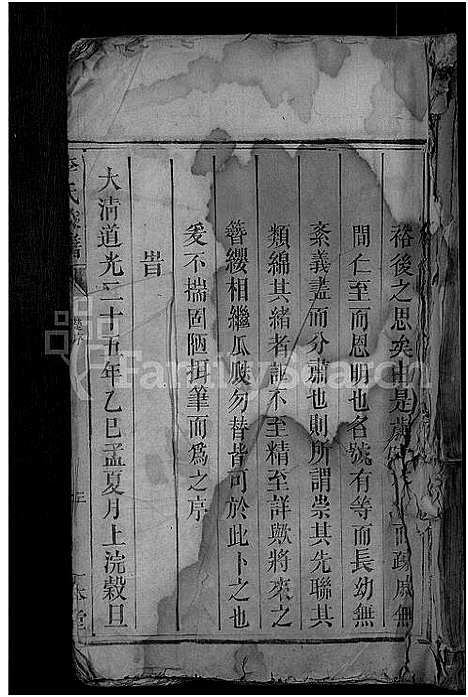 裕後之思矣由是而疎戚無
間仁至而恩明也名號有等而長幼無
紊義盡而分肅也則所謂崇其先聯其
類綿其緒者詎不至精至詳歟將來之
簪纓相繼瓜瓞勿替皆可於此卜之也
爰不揣固陋珥筆而為之序
旹
大清道光二十五年乙巳孟夏月上浣穀旦
氏族譜
FamilySearch